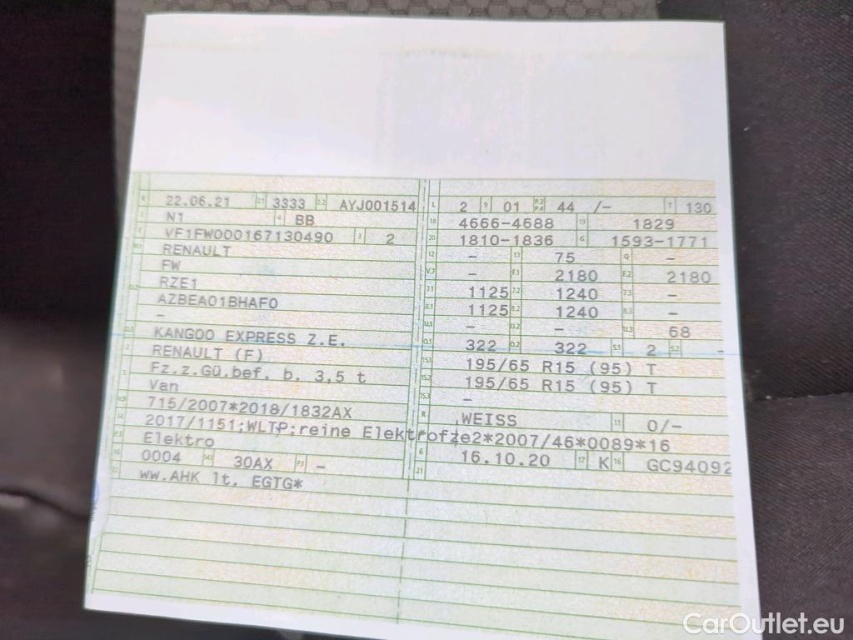 22.06.21 3333 AYJ001514
N1 BB
VF1FW000167130490 2
RENAULT
FW
RZE1
AZBEA01BHAF0
-
KANGOO EXPRESS Z.E.
RENAULT (F)
Fz.z.Gü.bef. b. 3,5 t
Van
715/2007*2018/1832AX
2017/1151;WLTP;reine Elektrofze2*2007/46*0089*16
Elektro
0004 30AX -
ww.AHK lt. EGTG*
L 2 9 01 44 /- T 130
18 4666-4688 19 1829
20 1810-1836 G 1593-1771
12 - 13 75 Q -
V.7 - F.1 2180 F.2 2180
7.1 1125 7.2 1240 7.3 -
8.1 1125 8.2 1240 8.3 -
U.1 - U.2 - U.3 68
O.1 322 O.2 322 S.1 2 S.2 -
15.1 195/65 R15 (95) T
15.2 195/65 R15 (95) T
15.3 -
R WEISS 11 0/-
6 16.10.20 17 K 16 GC94092
21
CarOutlet.eu